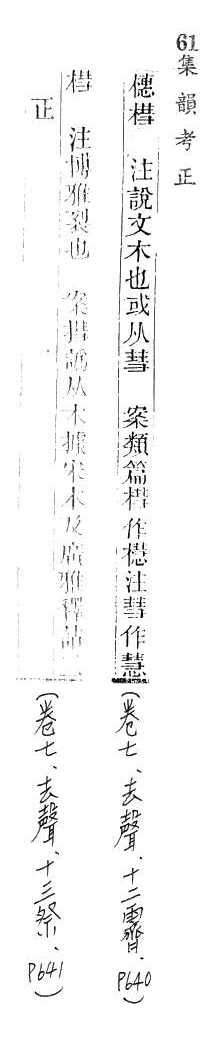 61集韻考正
櫘槥 注說文木也或从彗 案類篇槥作櫘注彗作慧(卷七、去聲、十二霽、P640)
槥 注博雅裂也 案槥譌从木據宋本及廣雅釋詁二
正(卷七、去聲、十三祭、P641)